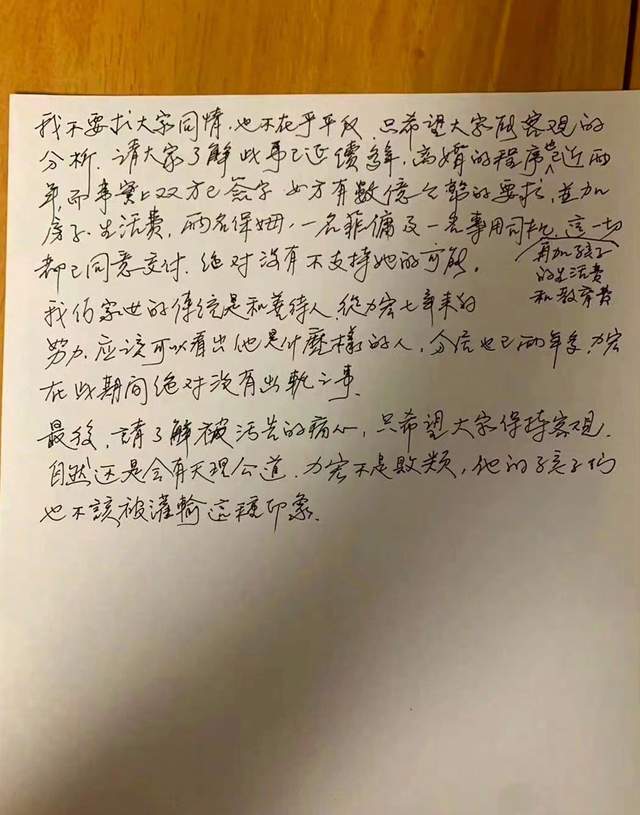 我不要求大家同情,也不在乎平反,只希望大家能客观的
分析.請大家了解此事已延續多年,离婚的程序也近两
年,而事實上双方已簽字 女方有數億台幣的要求,並加
房子.生活费,两名保姆,一名菲傭及一名專用司机,這一切
再加孩子
的生活费
和教育费
都已同意交付.绝对没有不支持她的可能.
我们家世的傳統是和善待人 從力宏七年来的
努力.应該可以看出他是什麼樣的人,分居也已两年多,力宏
在此期间绝对没有出軌之事.
最後,請了解被污告的痛心,只希望大家保持客观.
自然还是会有天理公道.力宏不是败类,他的孩子们
也不該被灌輸這種印象.